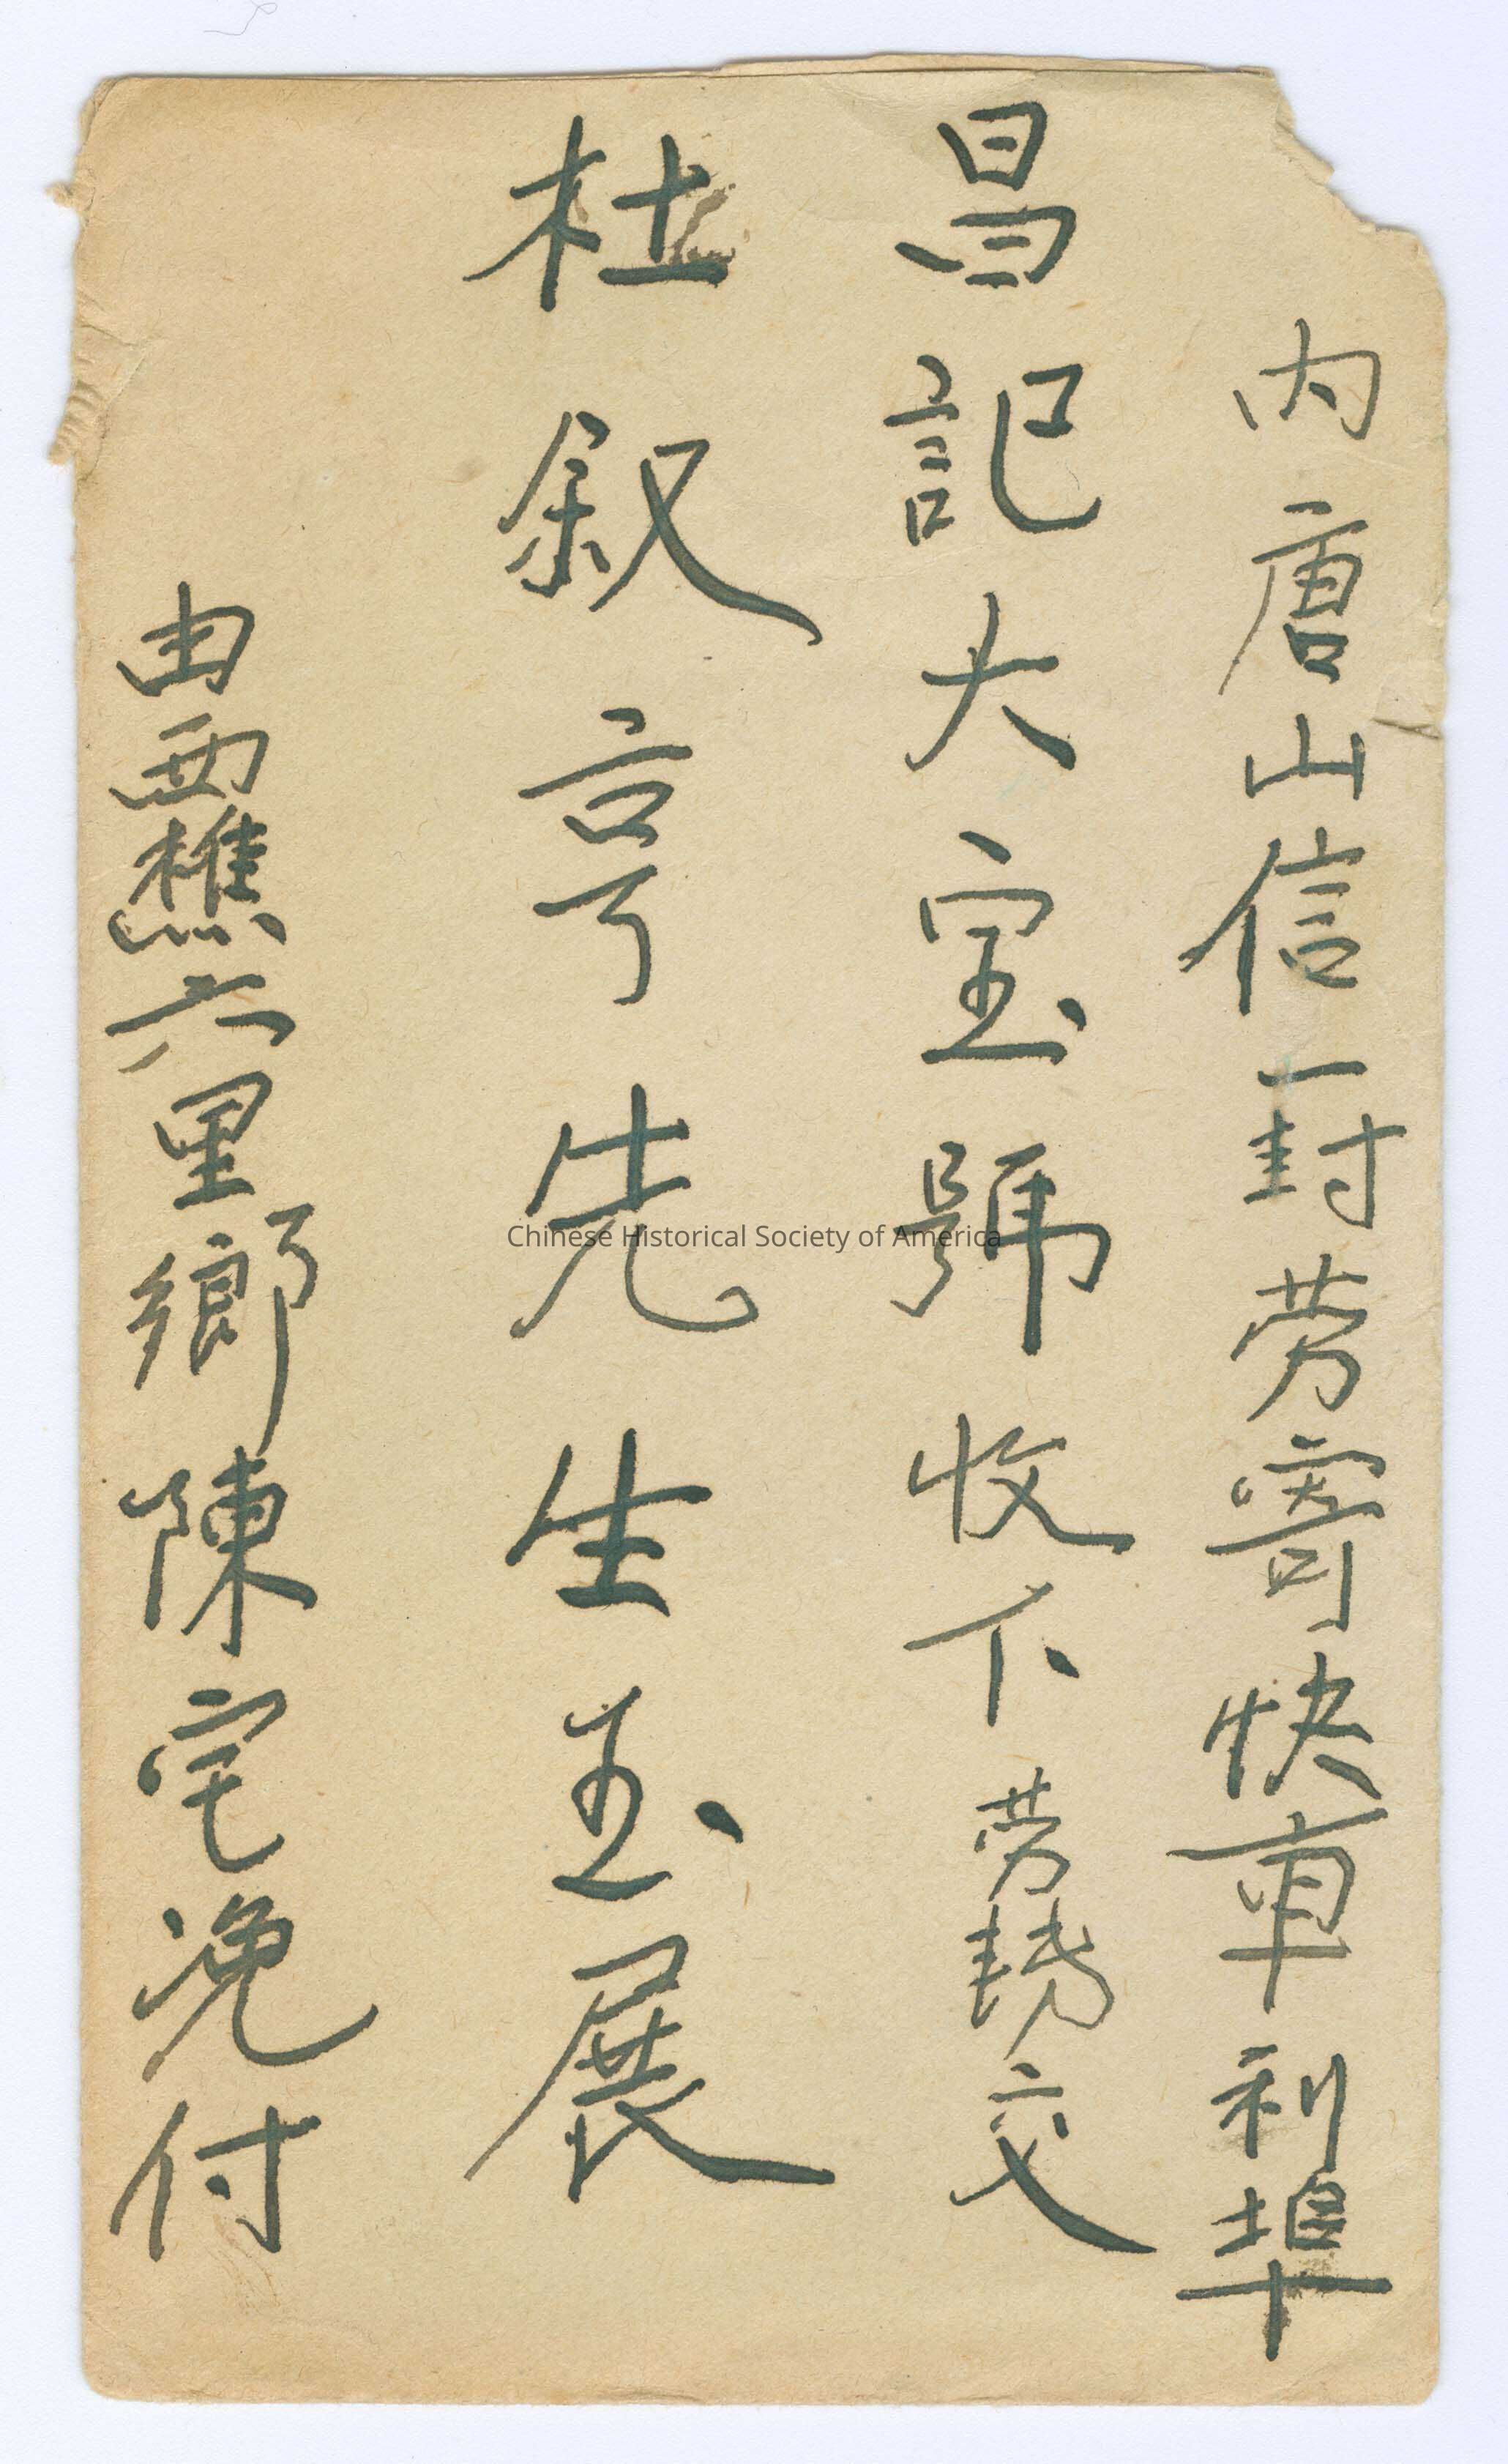 内唐山信一封劳寄快車利埠
昌記大宝號收下劳駕交
杜叙亨先生玉展
由西樵六里鄉陳宅凂付
Chinese Historical Society of America